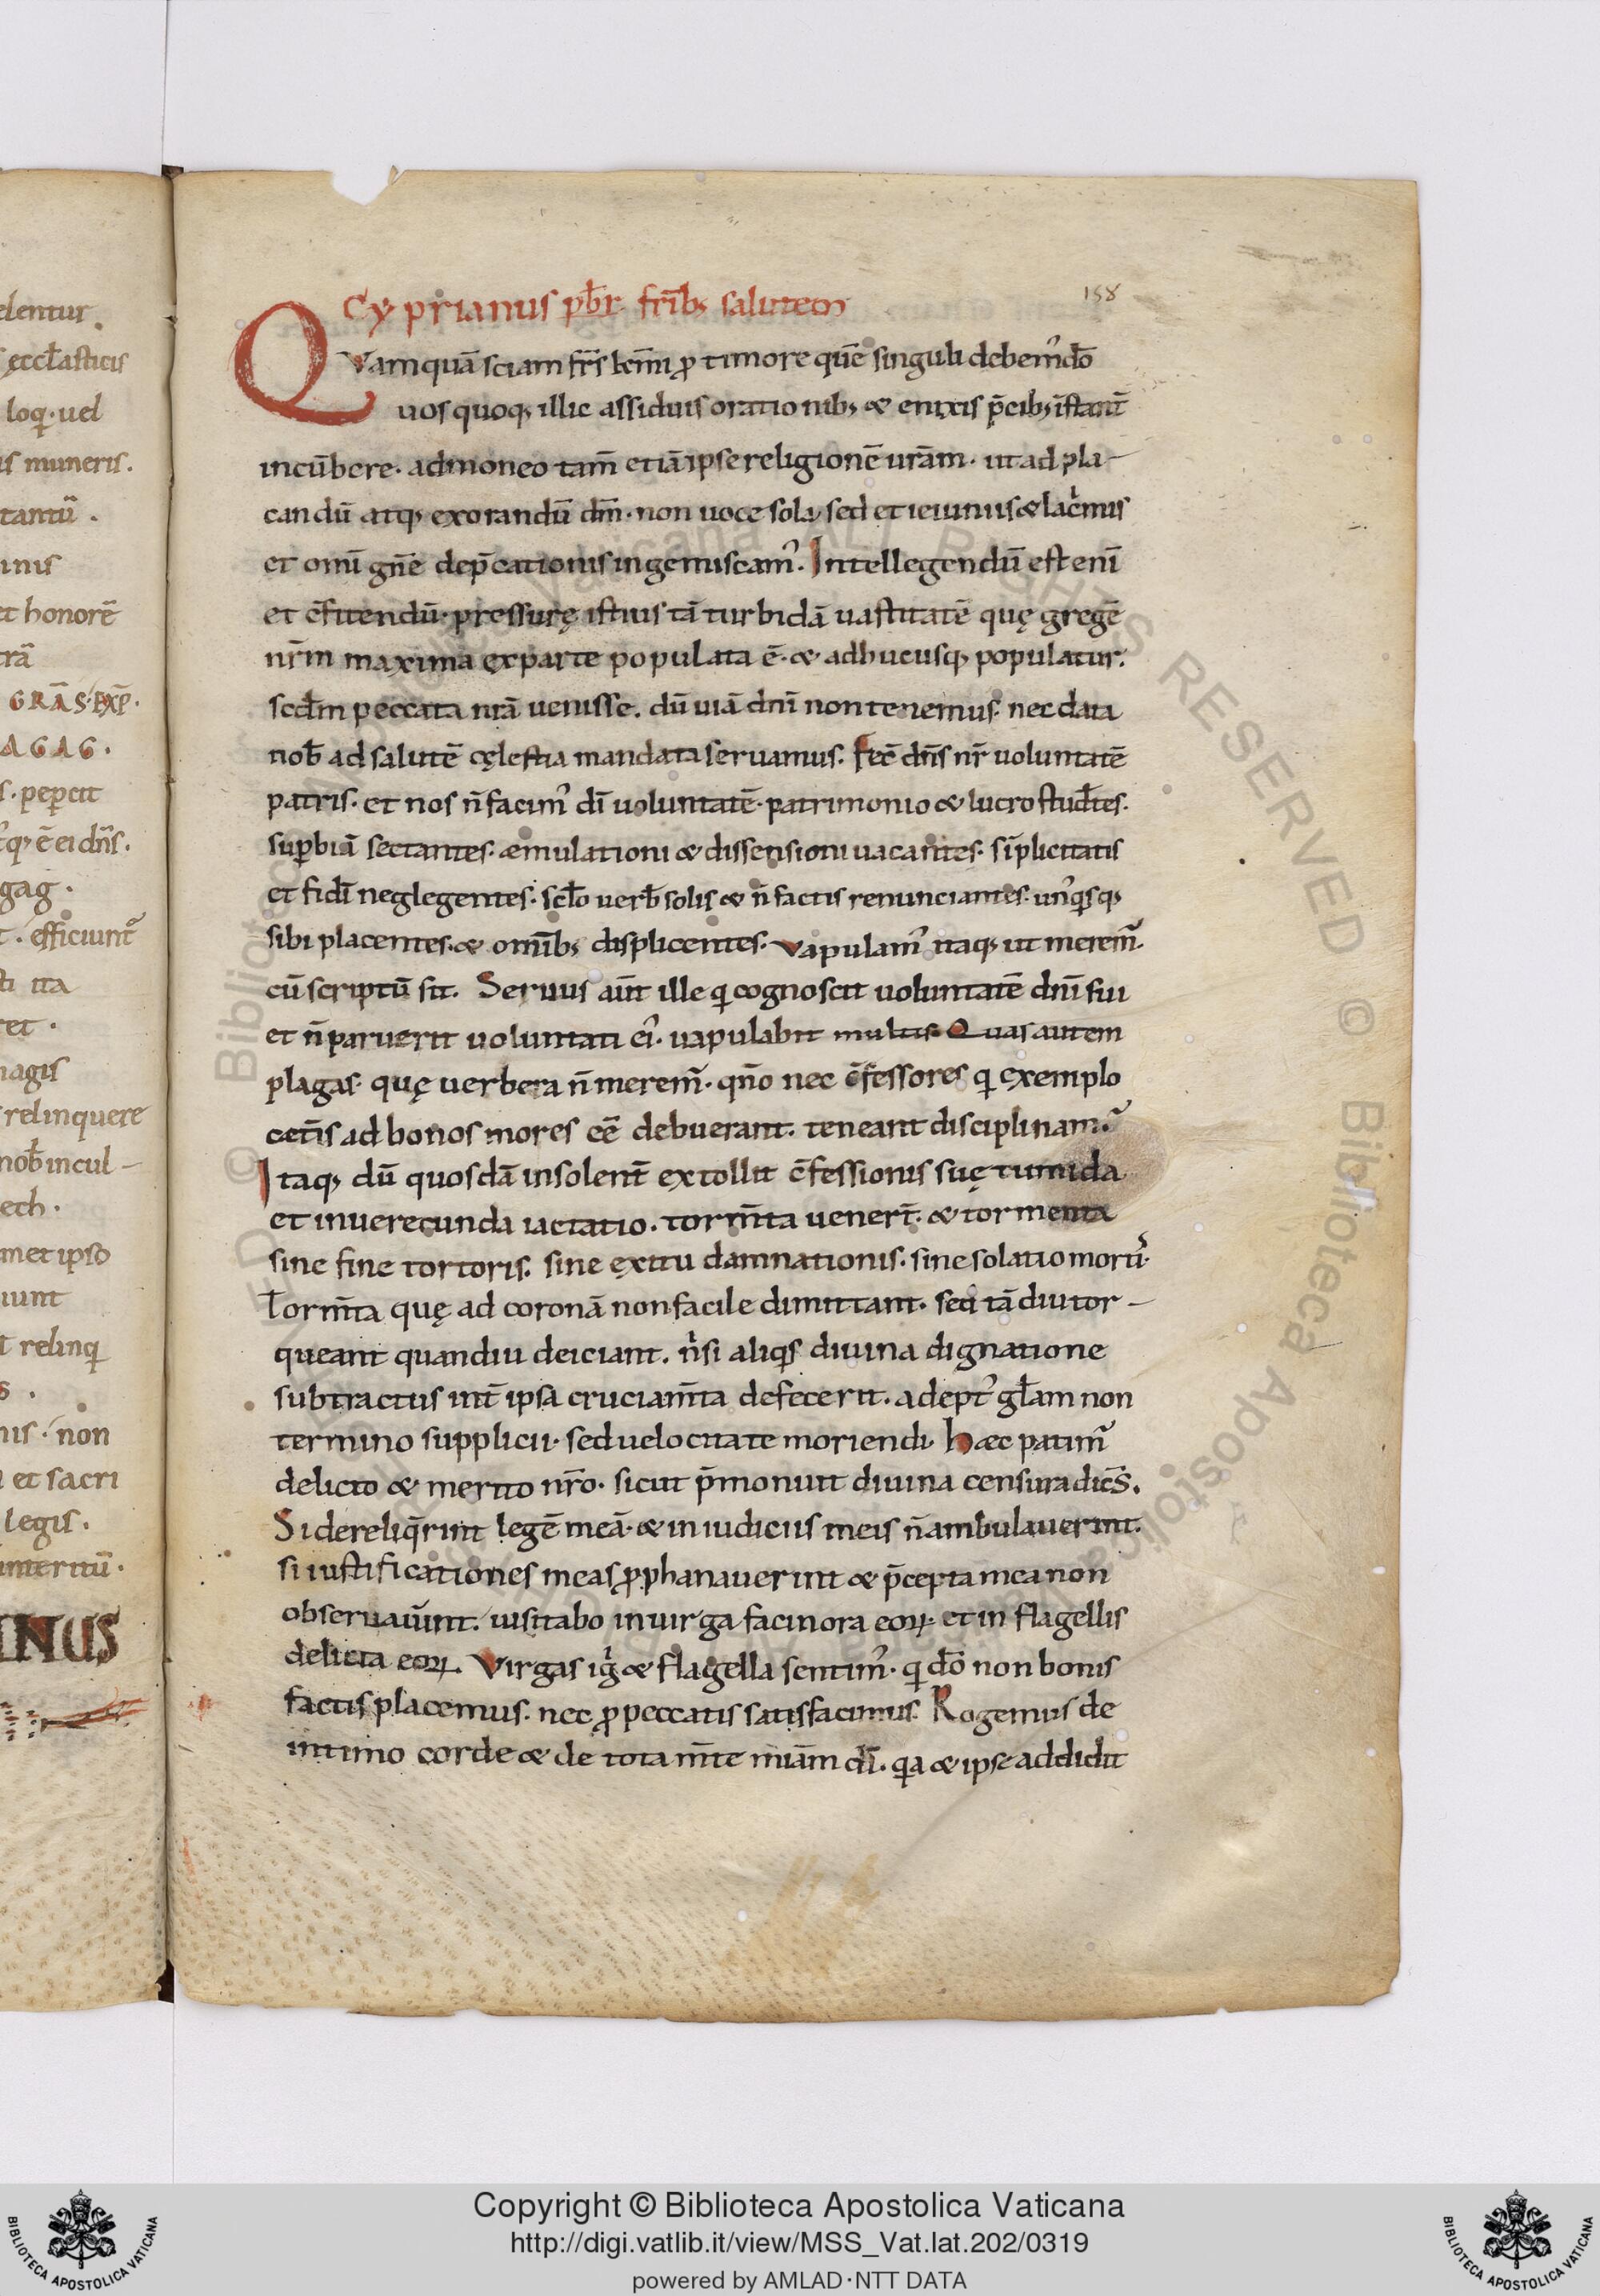 elentur
ęccłasticis
loq̨ uel
is muneris.
tantū.
inis
et honorē
trā
GRĀS. EXP̄.
AGAG.
s. pep̱cit
qꝫ ē ei dn̄s.
gag.
t. efficiunt᷑
ti ita
ret.
magis
relinquere
nob̄ incul-
ech.
met ipso
iunt
t relinq̨
s.
nis. non
et sacri
legis.
interitū.
INUS
158
Cyprianus pb̄r fr̄ibꝫ salutem
QVamquā sciam fr̄s km̄i ꝓ timore quē singuli debemꝰ dō
uos quoqꝫ illic assiduis orationibꝫ & enixis p̄cibꝫ īstant̄
incūbere. admoneo tam̄ etiā ipse religionē urām. ut ad pla-
candū atqꝫ exorandū dm̄. non uoce sola sed et ieiuniis & lacͥmis
et omī gn̄e dep̄cationis ingemiscamꝰ. Intellegendū est enī
et c̄fitendū. pressurę istius tā turbidā uastitatē quę gregē
nr̄m maxima ex parte populata ē. & adhucusqꝫ populatur.
scd̄m peccata nr̄a uenisse. dū uiā dn̄i non tenemus. nec data
nob̄ ad salutē cęlestia mandata seruamus. Fec̄ dn̄s nr̄ uoluntatē
patris. et nos n̄ facimꝰ dī uoluntatē. patrimonio & lucro stud̄tes.
suꝑbiā sectantes. æmulationi & dissensioni uacantes. sīplicitatis
et fidī neglegentes. scło uerb̄ solis & n̄ factis renunciantes. unꝰq̨sqꝫ
sibi placentes. & omībꝫ displicentes. Vapulamꝰ itaqꝫ ut merem᷑.
cū scriptū sit. Seruus aūt ille q̨ cognoscit uoluntatē dn̄i sui
et n̄ paruerit uoluntati eiꝰ. uapulabit multis. Quas autem
plagas. quę uerbera n̄ merem᷑. qn̄o nec c̄fessores q̨ exemplo
cet̄is ad bonos mores eē debuerant. teneant disciplinam.᷑
Itaqꝫ dū quosdā insolent̄ extollit c̄fessionis suę tumida
et inuerecunda iactatio. torm̄ta uener̄t. & tormenta
sine fine tortoris. sine exitu damnationis. sine solatio mortꝰ.
Torm̄ta quę ad coronā non facile dimittant. sed tā diu tor-
queant quandiu deiciant. nͥsi aliq̨s diuina dignatione
subtractus int̄ ipsa cruciam̄ta defecerit. adeptꝰ głam non
termino supplicii. sed uelocitate moriendi. hæc patim᷑
delicto & merito nr̄o. sicut p̄monuit diuina censura dic̄s.
Si dereliq̄rint legē meā. & in iudiciis meis n̄ ambulauerint.
si iustificationes meas ꝓphanauerint & p̄cepta mea non
obseruauīnt. uisitabo in uirga facinora eoꝝ. et in flagellis
delicta eoꝝ. Virgas igͥ & flagella sentimꝰ. q̨ dō non bonis
factis placemus. nec ꝓ peccatis satisfacimus. Rogemus de
intimo corde & de tota m̄te miām dī. q̨a & ipse addidit
Copyright © Biblioteca Apostolica Vaticana
http://digi.vatlib.it/view/MSS_Vat.lat.202/0319
powered by AMLAD·NTT DATA
BIBLIOTECA APOSTOLICA VATICANA
BIBLIOTECA APOSTOLICA VATICANA